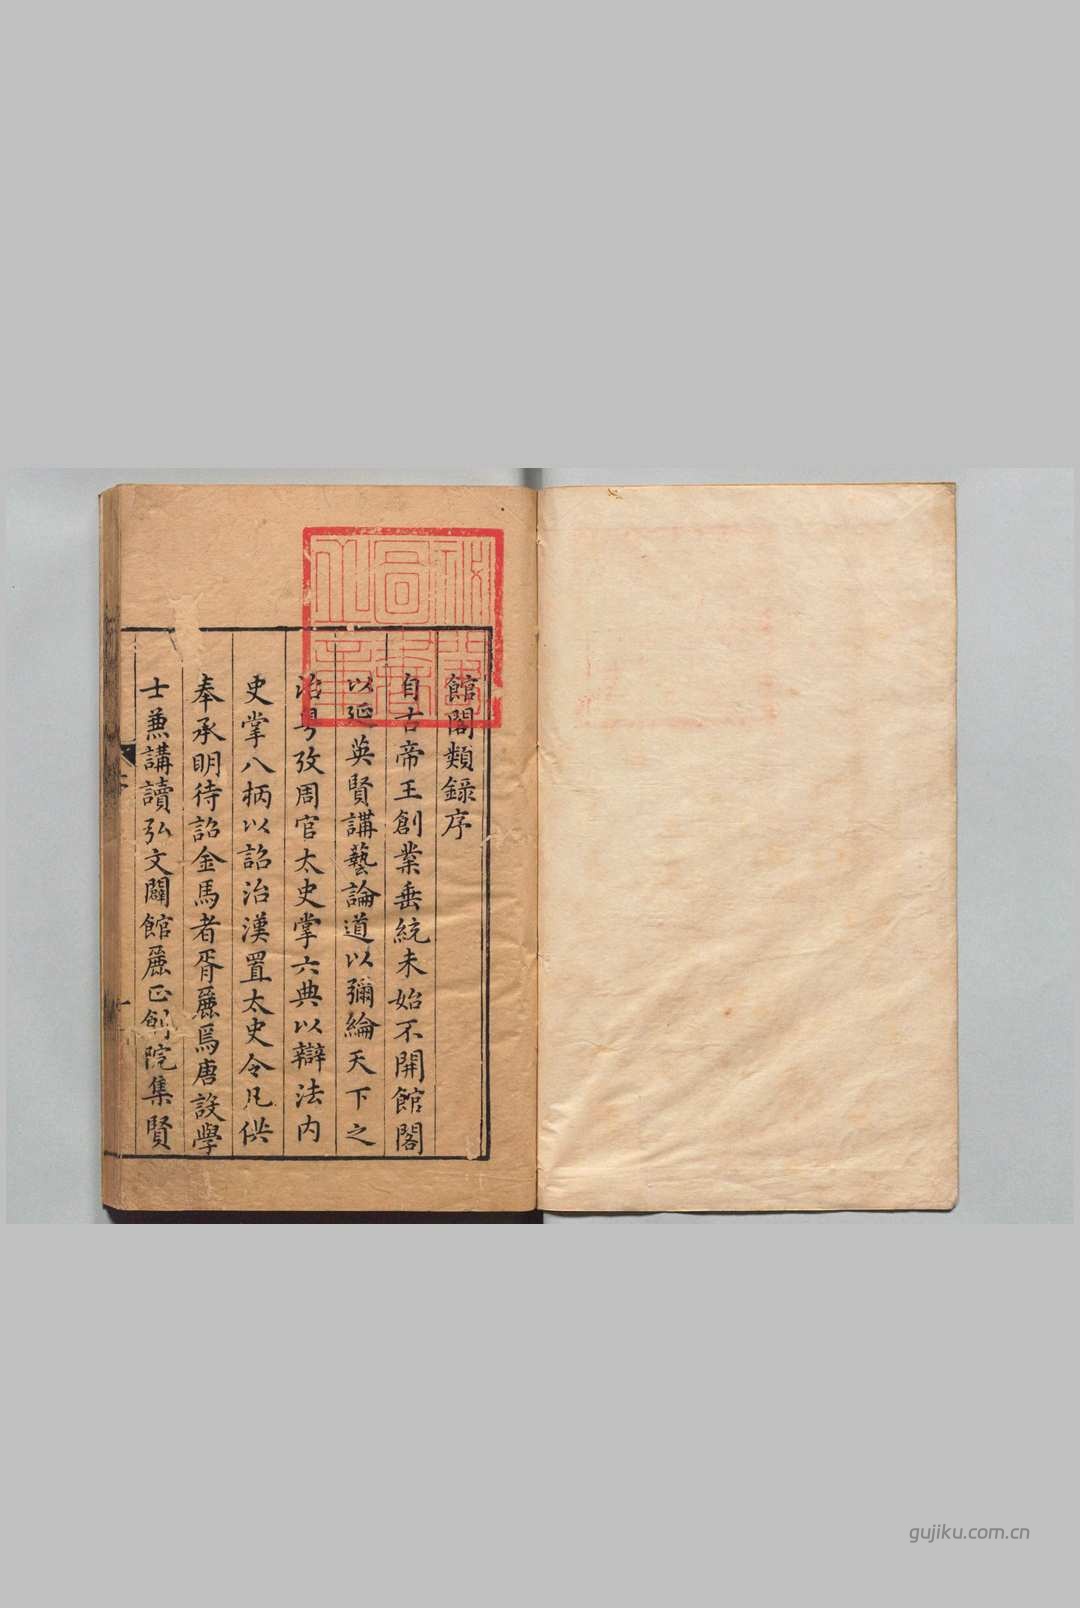 館閣類錄序
自古帝王創業垂統未始不開館閣
以延英賢講藝論道以彌綸天下之
治粤攷周官太史掌六典以辯法內
史掌八柄以詔治漢置太史令凡供
奉承明待詔金馬者胥麗焉唐設學
士兼講讀弘文闢館麗正剏院集賢
gujiku.com.cn